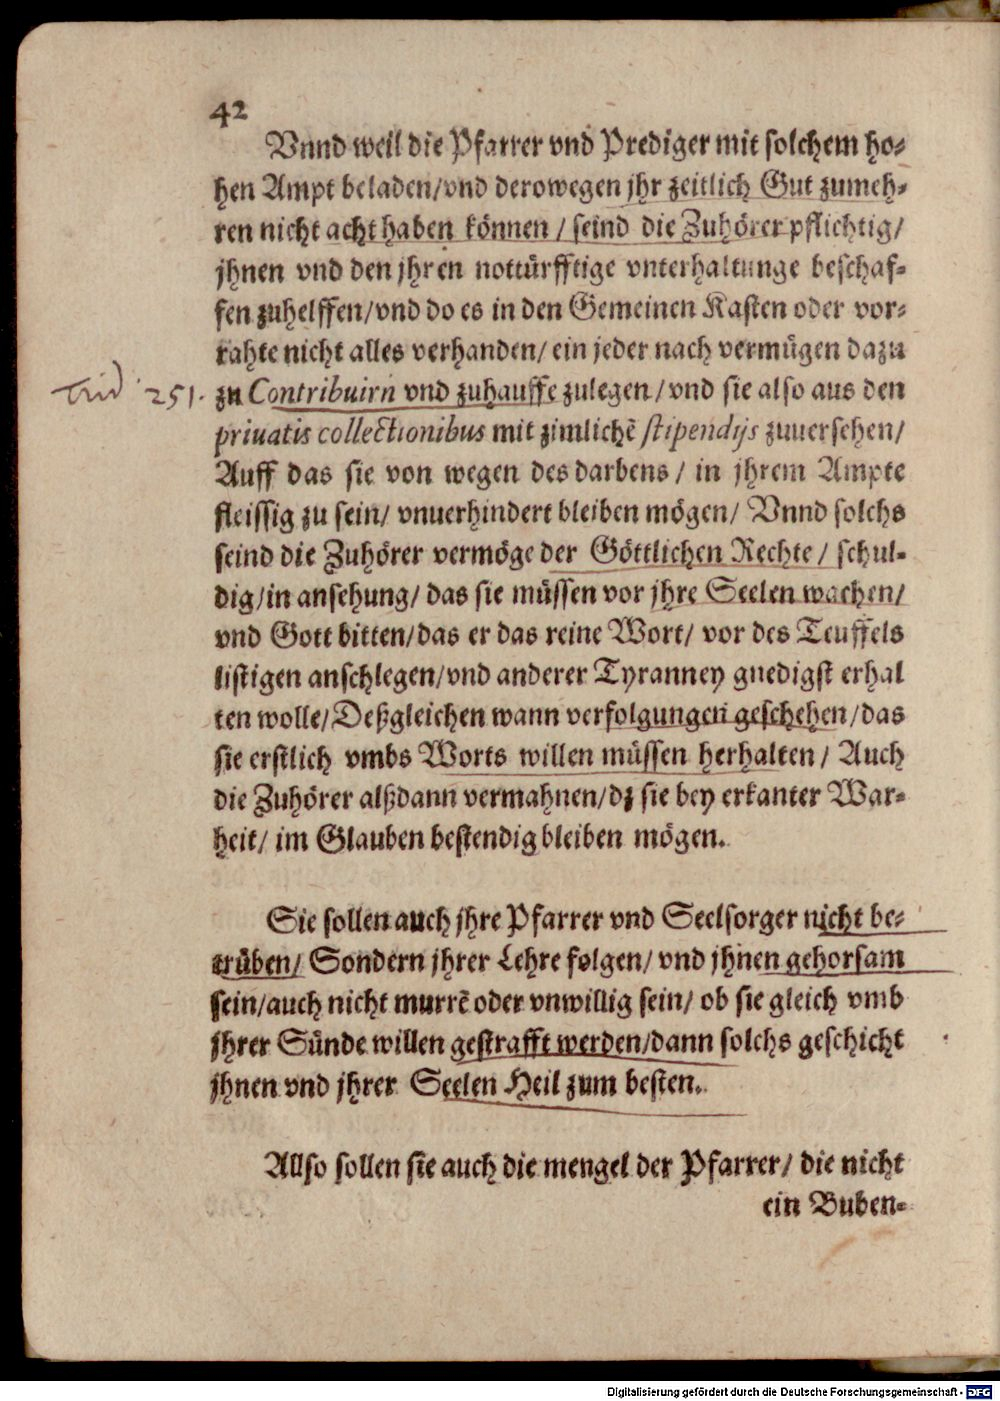 42
Vnnd weil die Pfarrer vnd Prediger mit solchem ho-
hen Ampt beladen/vnd derowegen jhr zeitlich Gut zumeh-
ren nicht acht haben können / seind die Zuhörer pflichtig/
jhnen vnd den jhren nottürfftige vnterhaltunge beschaf-
fen zuhelffen/vnd do es in den Gemeinen Kasten oder vor-
rahte nicht alles verhanden/ ein jeder nach vermügen dazu
251. zu Contribuirn vnd zuhauffe zulegen/ vnd sie also aus den
priuatis collectionibus mit zimlichē stipendijs zuuersehen/
Auff das sie von wegen des darbens / in jhrem Ampte
fleissig zu sein/ vnuerhindert bleiben mögen/ Vnnd solchs
seind die Zuhörer vermöge der Göttlichen Rechte / schul-
dig/in ansehung/ das sie müssen vor jhre Seelen wachen/
vnd Gott bitten/das er das reine Wort/ vor des Teuffels
listigen anschlegen/vnd anderer Tyranney gnedigst erhal
ten wolle/Deßgleichen wann verfolgungen geschehen/das
sie erstlich vmbs Worts willen müssen herhalten / Auch
die Zuhörer alßdann vermahnen/dz sie bey erkanter War-
heit/ im Glauben bestendig bleiben mögen.
Sie sollen auch jhre Pfarrer vnd Seelsorger nicht be-
trüben/ Sondern jhrer Lehre folgen/ vnd jhnen gehorsam
sein/auch nicht murrē oder vnwillig sein/ ob sie gleich vmb
jhrer Sünde willen gestrafft werden/dann solchs geschicht
jhnen vnd jhrer Seelen Heil zum besten.
Allso sollen sie auch die mengel der Pfarrer/ die nicht
ein Buben-
Digitalisierung gefördert durch die Deutsche Forschungsgemeinschaft - DFG